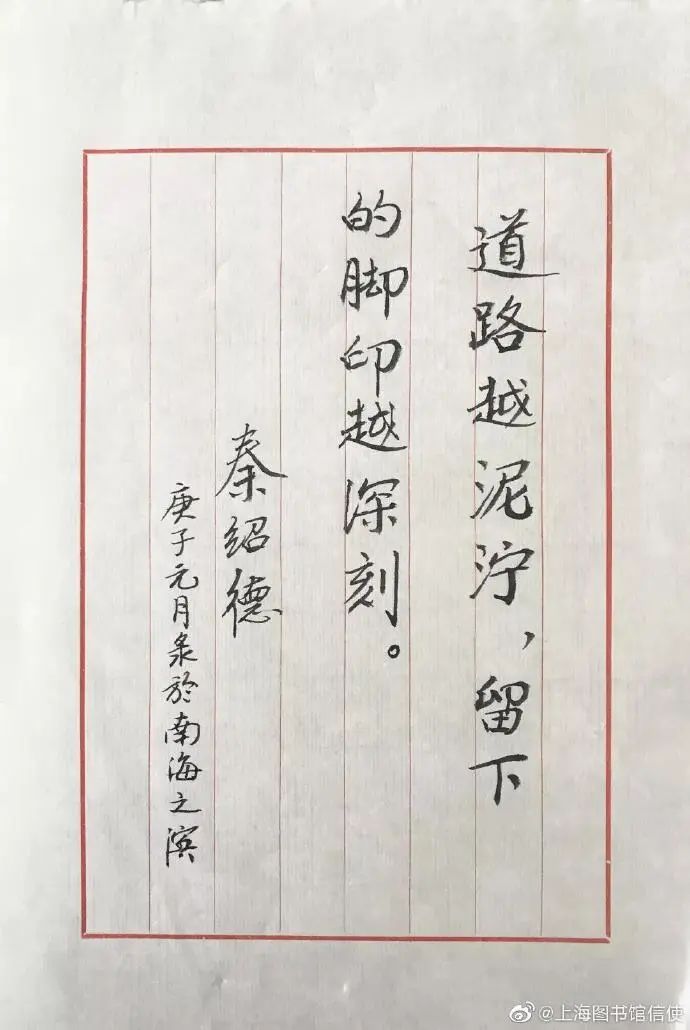 道路越泥泞，留下
的脚印越深刻。
秦绍德
庚子元月录於南海之滨
@上海图书馆信使